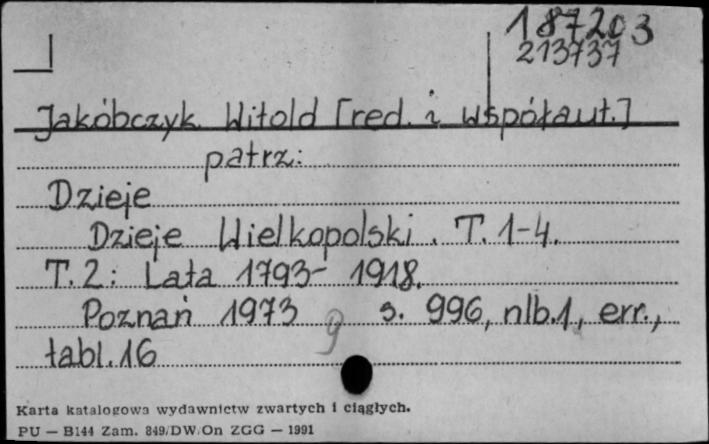 187203
213737
Jakóbczyk Witold [red. i współaut.]
patrz:
Dzieje
Dzieje Wielkopolski. T. 1-4.
T. 2: Lata 1793- 1918.
Poznań 1973 s. 996, nlb. 1, err.,
tabl. 16
Karta katalogowa wydawnictw zwartych i ciągłych.
PU — B144 Zam. 849/DW/On ZGG — 1991